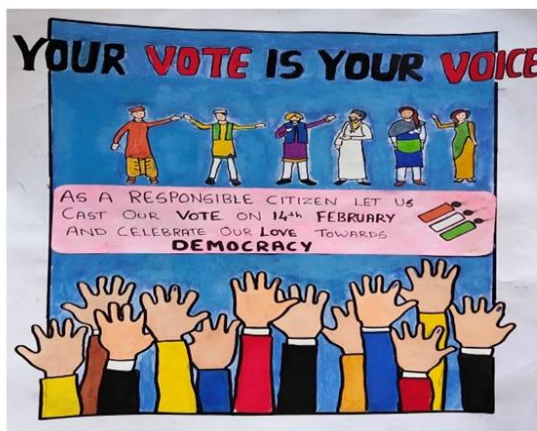 YOUR VOTE IS YOUR VOICE
AS A RESPONSIBLE CITIZEN LET US
CAST OUR VOTE ON 14th FEBRUARY
AND CELEBRATE OUR LOVE TOWARDS
DEMOCRACY